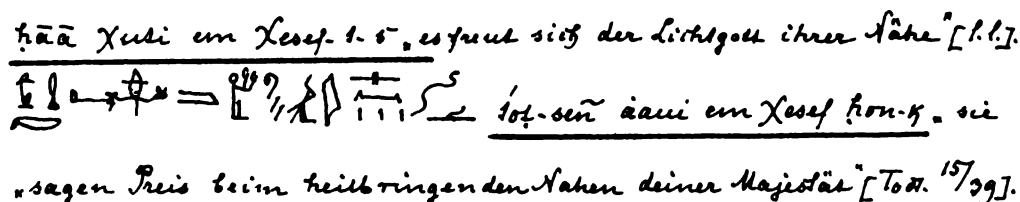 ḥāā χuti em χesef-s-s „es freut sich der Lichtgott ihrer Nähe" [l.l.].
śoṭ-señ àaui em χesef ḥon-k „sie
„sagen Preis beim heilbringenden Nahen deiner Majestät" [Todt. 15/39].